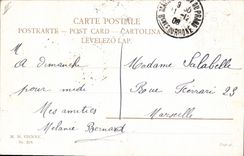 CARTE POSTALE
POSTKARTE - POST CARD - CARTOLINA
LEVELEZŐ LAP.
M
A dimanche
pour midi
Mes amitiés
Mélanie Bernard
Madame Salabelle
Rue Ferrari 23
Marseille
M. M. VIENNE